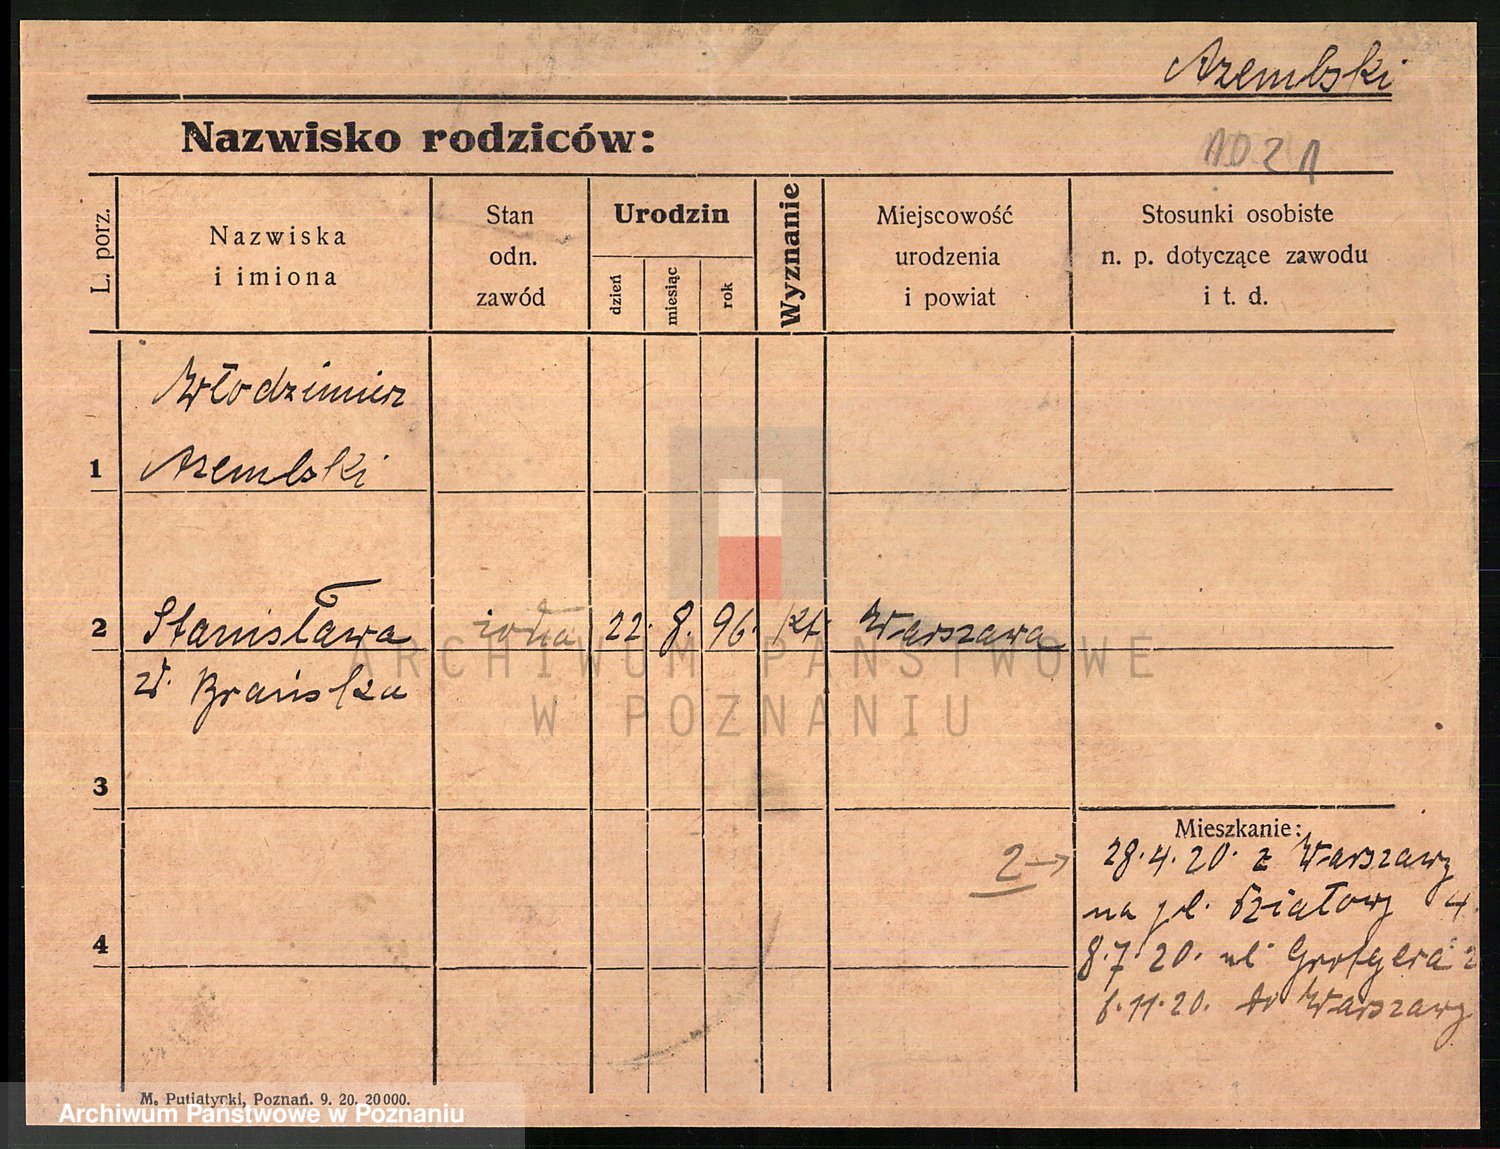 Azembski
Nazwisko rodziców:
1021
L. porz.
Nazwiska
i imiona
Stan
odn.
zawód
Urodzin
dzień
miesiąc
rok
Wyznanie
Miejscowość
urodzenia
i powiat
Stosunki osobiste
n. p. dotyczące zawodu
i t. d.
Włodzimierz
1 Azembski
2 Stanisława żona 22. 8. 96. kt. Warszawa
z d. Brańska
3
Mieszkanie:
2 → 28.4.20. z Warszawy
na pl. Działowy 4.
4
8.7.20. ul. Grotgera 2
6.11.20. do Warszawy
ARCHIWUM PAŃSTWOWE
W POZNANIU
M. Putiatycki, Poznań. 9. 20. 20000.
Archiwum Państwowe w Poznaniu